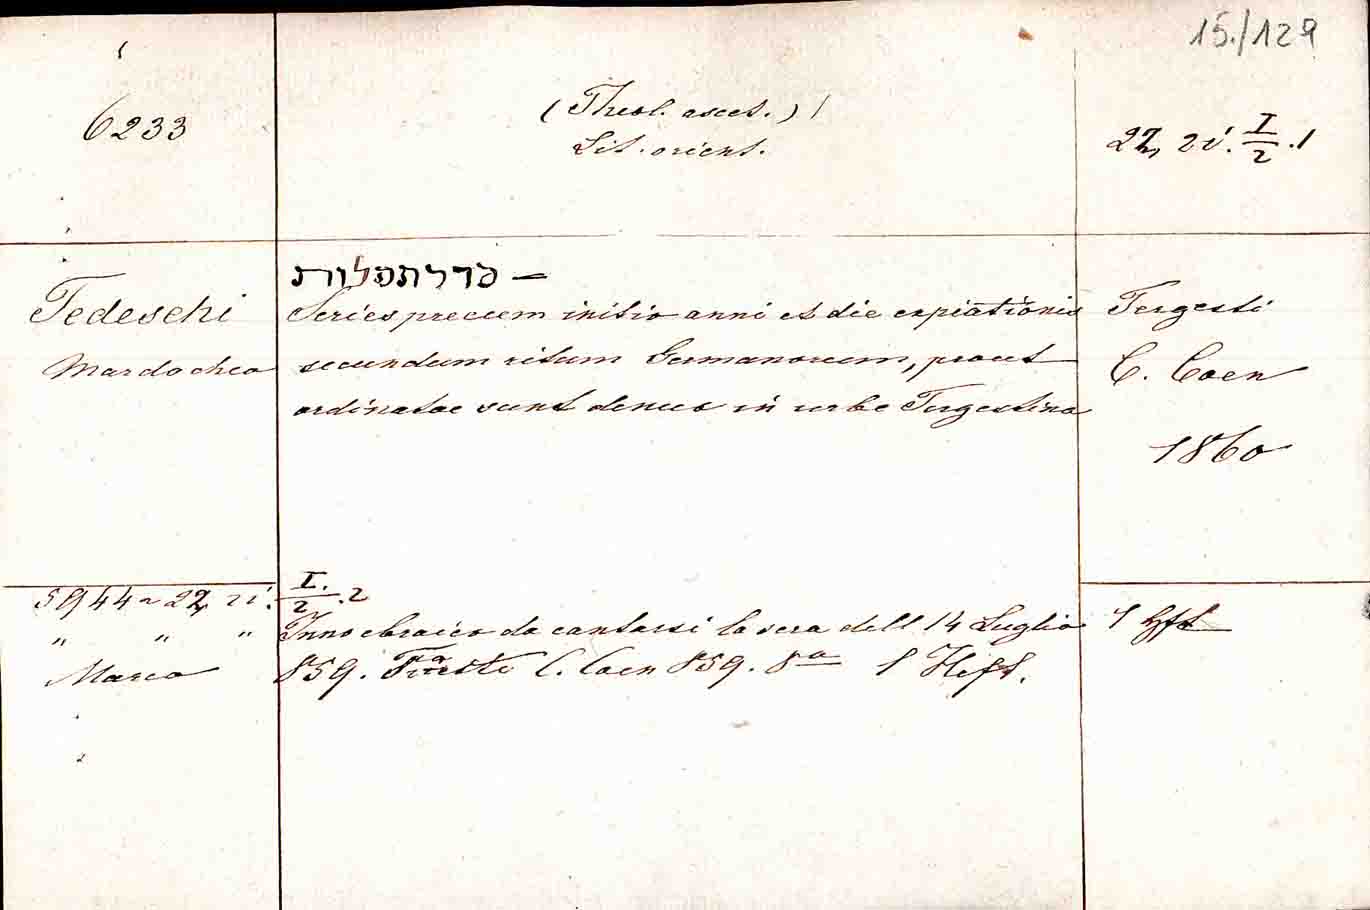 15./129
6233
(Theol. ascet.)
Lit. orient.
22, 2i. I/2 .1
סדר תפלות —
Tedeschi
Mardocheo
Series precum initio anni et die expiationis
secundum ritum Germanorum, prout
ordinatae sunt denuo in urbe Tergestina
Tergesti
C. Coen
1860
5944 ~ 22, 2i. I./2 .2
" " " Inno ebraico da cantarsi la sera dell 14 Luglio
Marco
859. Trieste C. Coen 859. 8a 1 Heft.
1 Hft